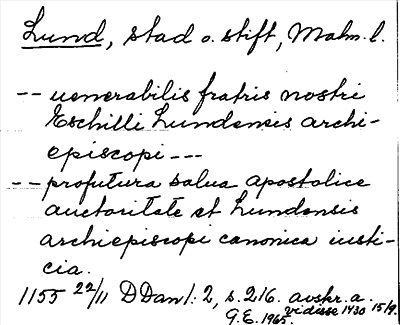 Lund, stad o. stift, Malm. l.
-- uenerabilis fratris nostri
Eschilli Lundensis archi-
episcopi ---
-- profutura salua apostolice
auctoritate et Lundensis
archiepiscopi canonica iusti-
cia.
1155 22/11 DDan 1: 2, s. 216. avskr. a.
vidisse 1430 15/9.
G.E. 1965.